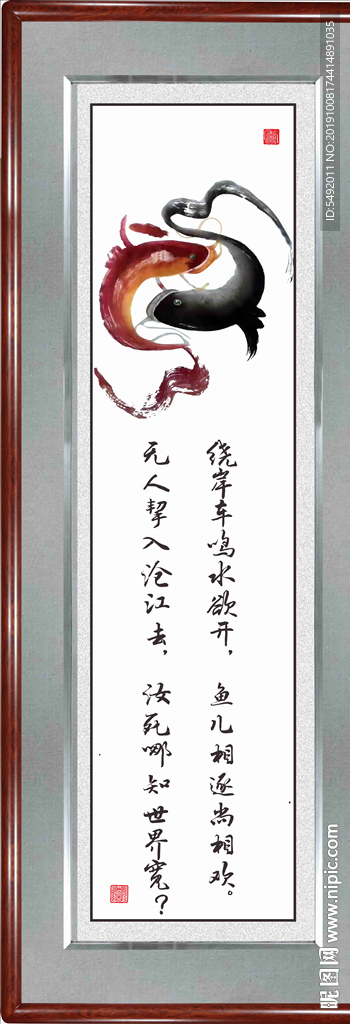 绕岸车鸣水欲开，鱼儿相逐尚相欢。
无人挈入沧江去，汝死哪知世界宽？
ID:5492011 NO:20191008174414891035
昵图网 www.nipic.com